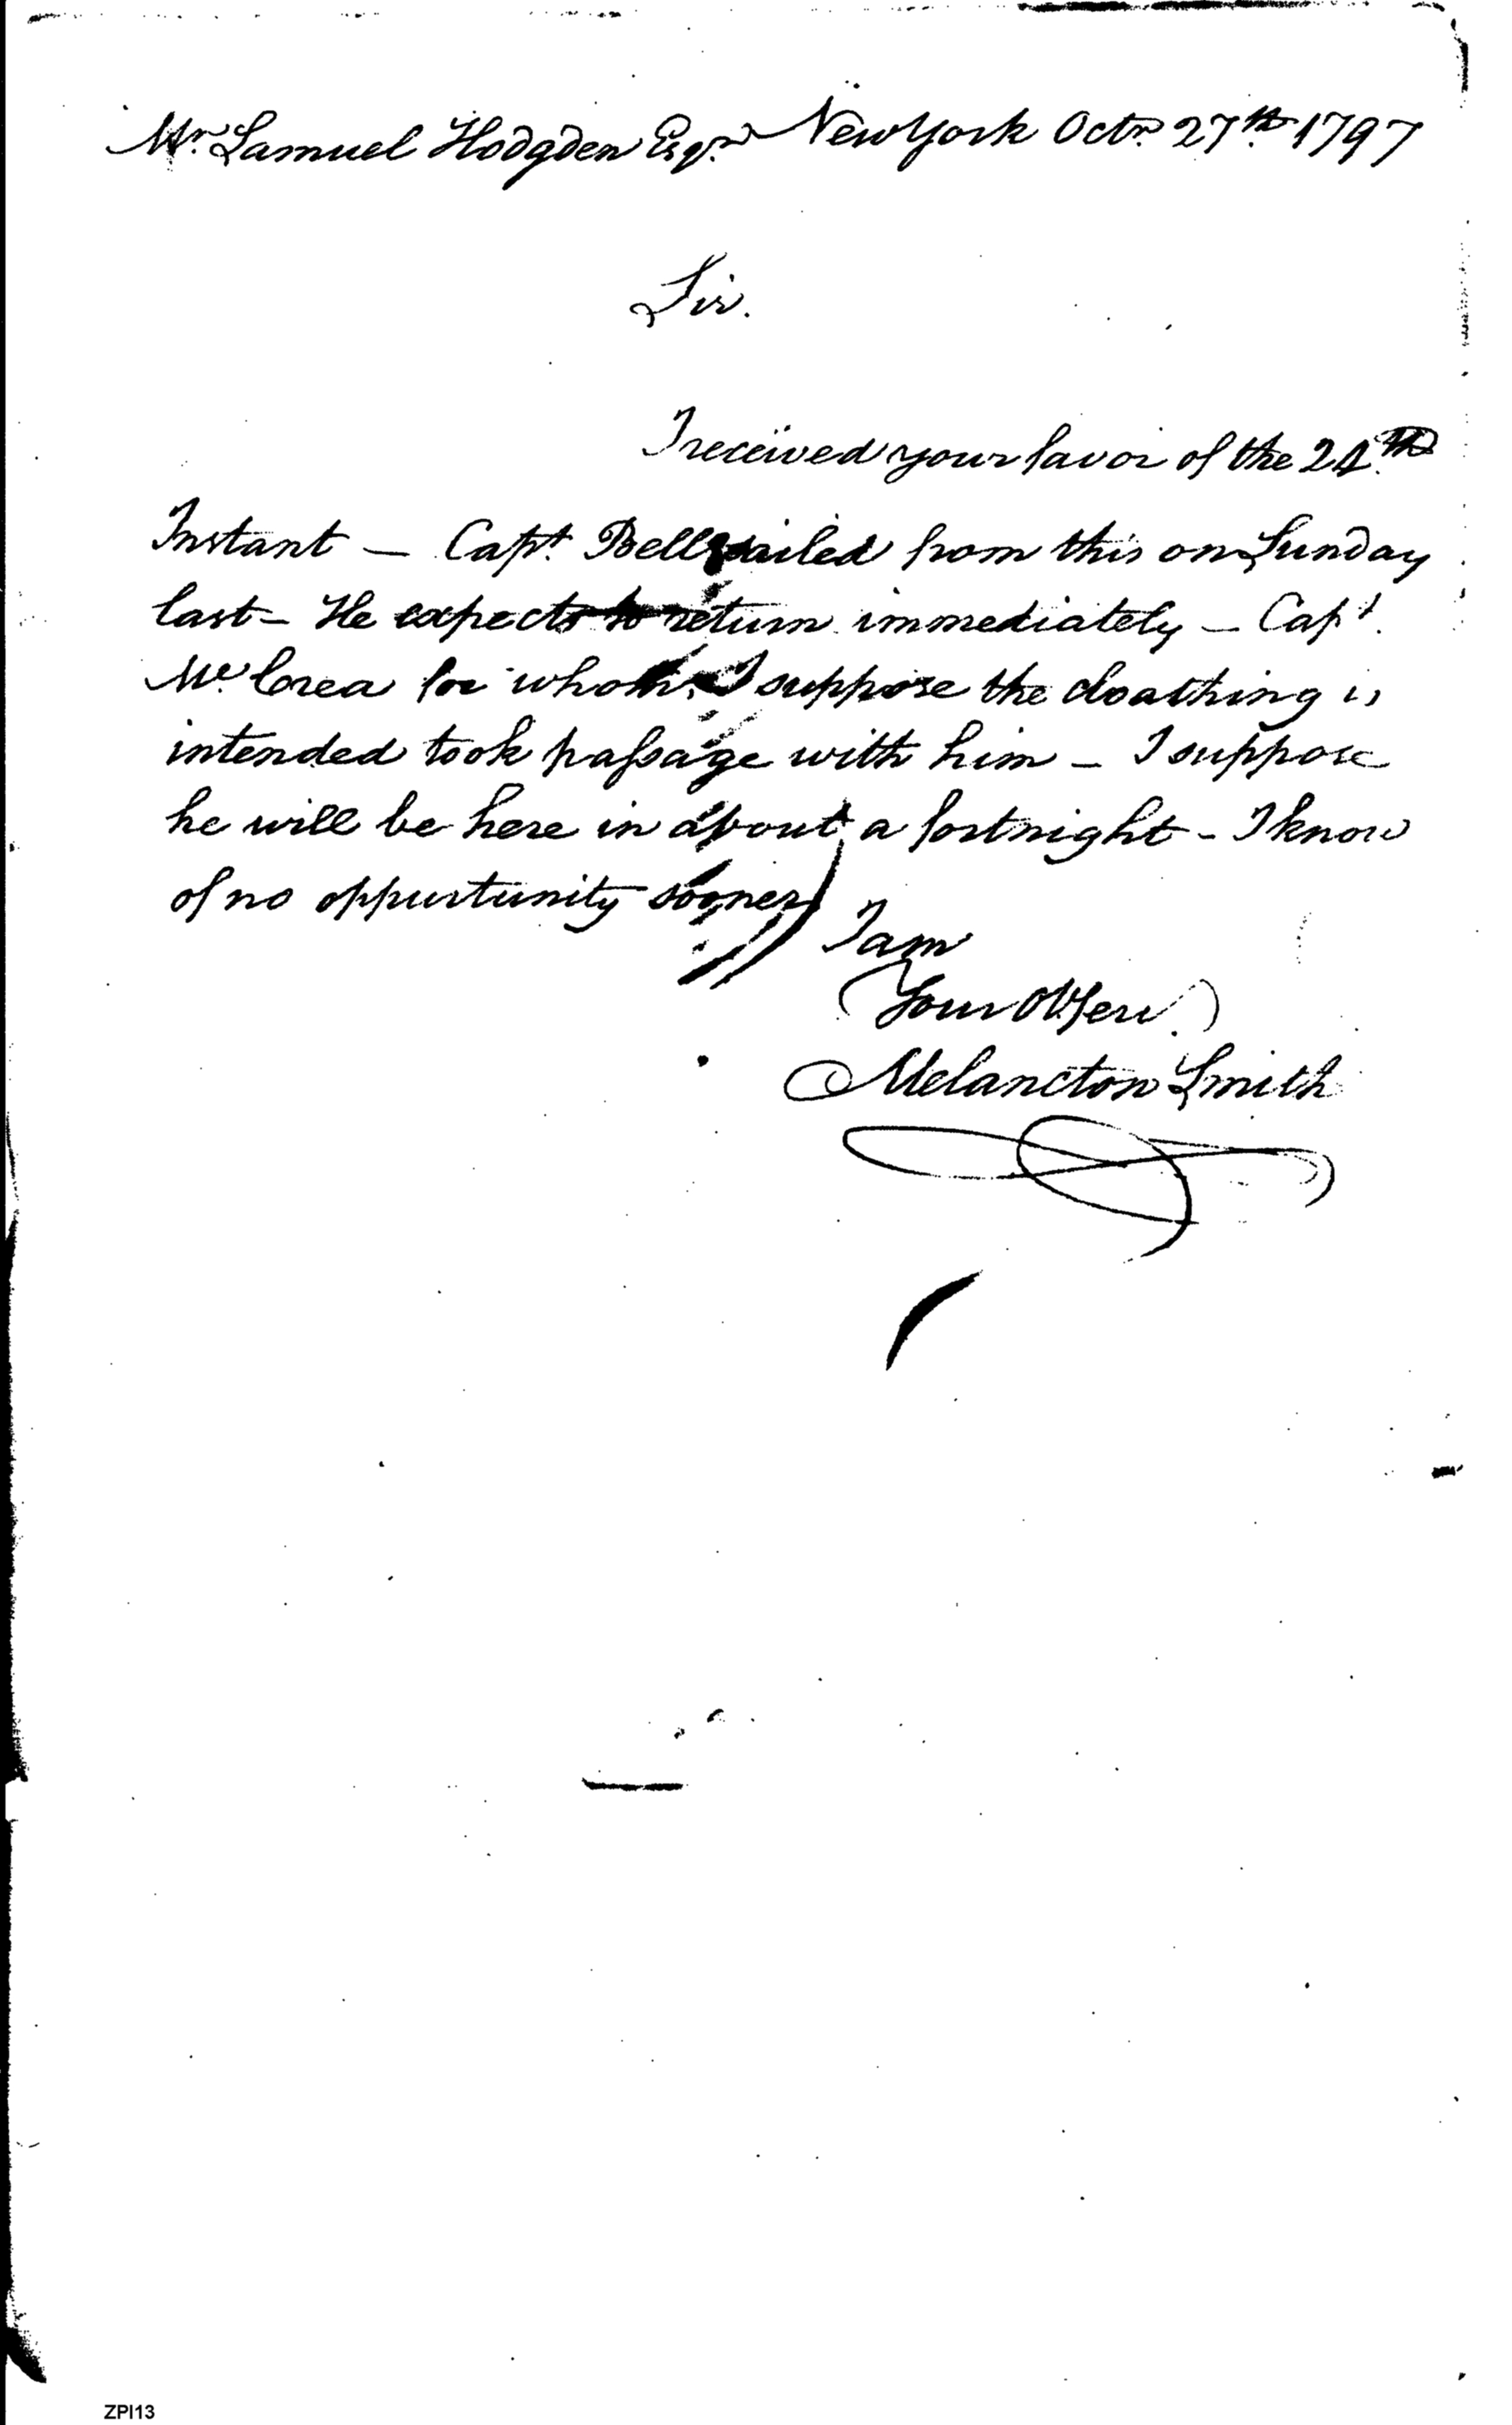 Mr. Samuel Hodgden Esqr. New York Octr. 27th. 1797
Sir.
I received your favor of the 24th.
Instant — Capt. Bell sailed from this on Sunday
last — He expects to return immediately — Capt.
Mc. Crea for whom I suppose the cloathing is
intended took passage with him — I suppose
he will be here in about a fortnight — I know
of no oppurtunity sooner
I am
Your Ob Serv.
Melancton Smith
ZPI13